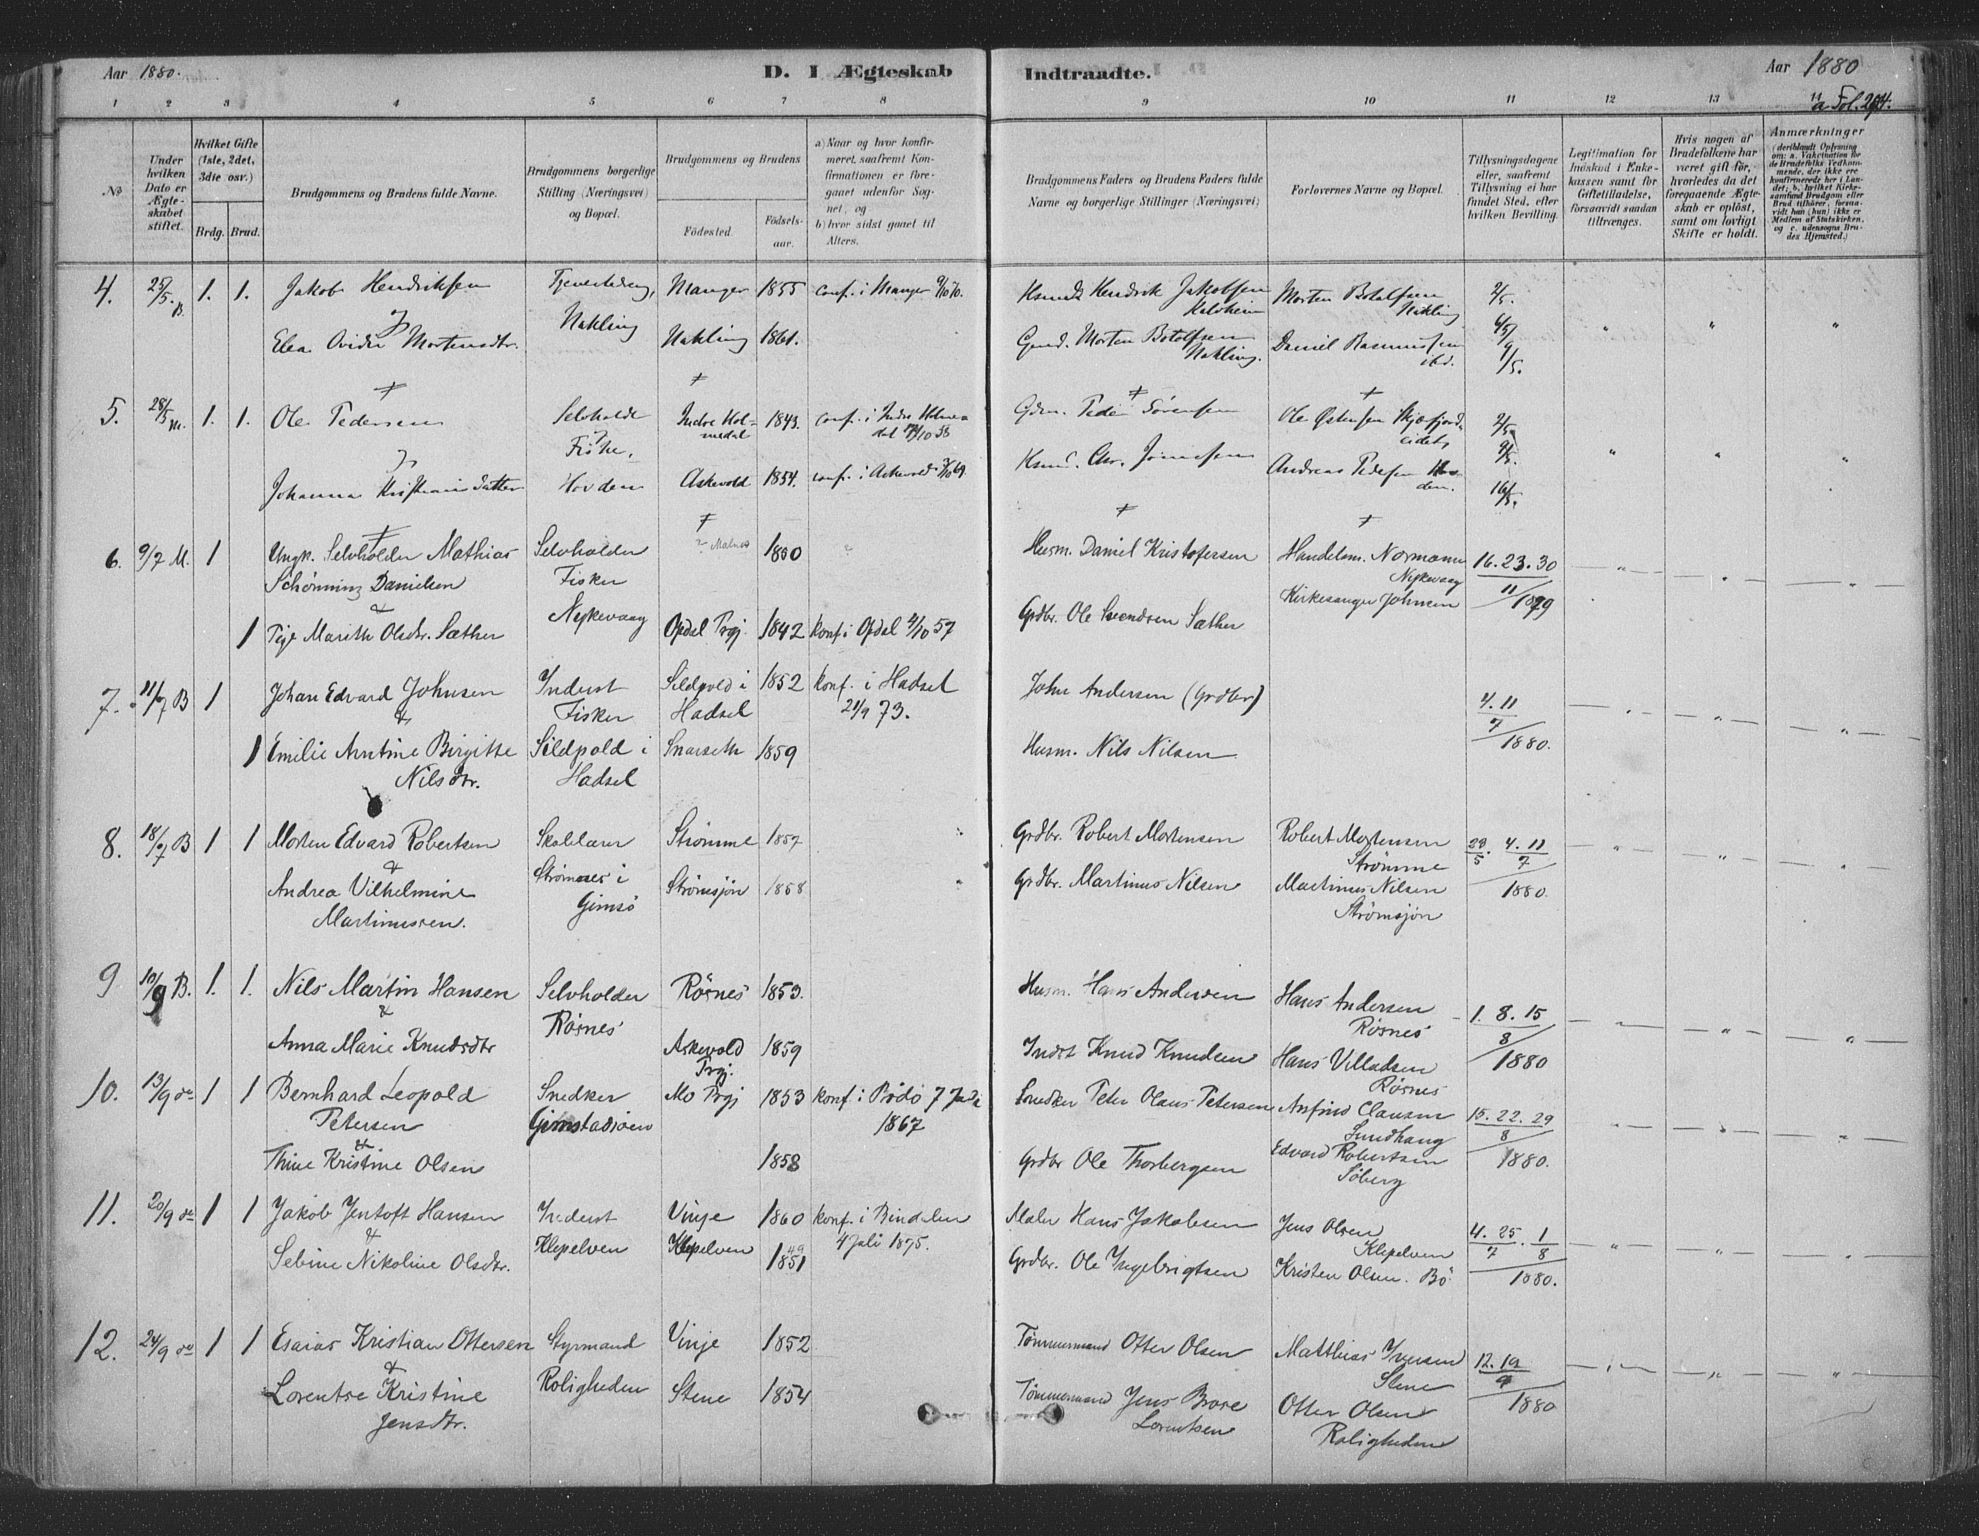 Aar 1880.
D. I Ægteskab
Indtraadte.
Aar 1880
a Fol. 294.
1 2 3 4 5 6 7 8 9 10 11 12 13 14
No
Under hvilken Dato er Ægteskabet stiftet.
Hvilket Gifte (1ste, 2det, 3die osv.)
Brdg. Brud.
Brudgommens og Brudens fulde Navne.
Brudgommens borgerlige Stilling (Næringsvei) og Bopæl.
Brudgommens og Brudens
Födested.
Födselsaar.
a) Naar og hvor konfirmeret, saafremt Konfirmationen er foregaaet udenfor Sognet, og
b) hvor sidst gaaet til Alters.
Brudgommens Faders og Brudens Faders fulde Navne og borgerlige Stillinger (Næringsvei)
Forlovernes Navne og Bopæl.
Tillysningsdagene eller, saafremt Tillysning ei har fundet Sted, efter hvilken Bevilling.
Legitimation for Indskud i Enkekassen samt for Giftetilladelse, forsaavidt saadan tiltrænges.
Hvis nogen af Brudefolkene har været gift för, hvorledes da det foregaaende Ægteskab er oplöst, samt om lovligt Skifte er holdt.
Anmærkninger
4. 25/5. B. 1. 1. Jakob Hendriksen
Nakling
Manger 1855 conf. i Manger
Hendrik Jakobsen
Morten Botolfsen Nakling
2/5.
Mortensdtr.
Nakling 1861.
Morten Botolfsen Nakling.
Daniel Rasmussen ibd.
9/5.
5. 28/5 M. 1. 1. Ole Pedersen
Selvholder Fisker,
Indre Holmedal 1843. conf. i Indre Holmedal
Peder Sörensen
Ole Østensen
2/5
Johanna Kristiansdatter
Hovden
Askevold 1854. conf. i Askevold
Andreas Pedersen Hovden.
16/5.
6. 9/7 M. 1 Ungk. Selvholder Mathias Schönning Danielsen
&
Selvholder Fisker Nykevaag
Malnes 1850
Husm. Daniel Kristofersen
Handelsm. Normann Nykevaag
16. 23. 30
11/1879
1 Marith Olsdtr. Sæther
Opdal Prgj. 1842 konf. i Opdal 4/10 57
Grdbr. Ole Svendsen Sæther
Kirkesanger Johnsen
7. 11/7 B 1 Johan Edvard Johnsen
&
Inderst Fisker
Sildpold i Hadsel
Sildpold i Hadsel 1852 konf. i Hadsel 21/9 73.
John Andersen (Grdbr)
4. 11
7
1880.
1 Emilie Antine Birgitte Nilsdtr.
1859
Husm. Nils Nilsen
8. 18/7 B 1 1 Morten Edvard Robertsen
&
Skolelærer
i Gimsö
Strömme 1857
Grdbr. Robert Mortensen
Robert Mortensen Strömme
23/5. 4. 11
7
1880.
Andrea Vilhelmine Martinussen.
Strömsjön 1858
Grdbr. Martinus Nilsen
Martinus Nilsen Strömsjön
9 10/9 B. 1. 1. Nils Martin Hansen
&
Selvholder Rösnes
Rösnes 1853.
Husm. Hans Andersen
Hans Andersen Rösnes
1. 8. 15
8
1880
Anna Marie Knudsdtr
Askevold Prgj. 1859
Indst Knud Knudsen
Hans Villadsen Rösnes
10. 13/9 1 1 Bernhard Leopold Petersen
&
Snedker
Gimstadøien
Mo Prgj 1853 konf. i Bödö 7 1867
Snedker Peter Olaus Petersen
Anfind Clausen
15. 22. 29
8
1880.
Thine Kristine Olsen
1858
Grdbr Ole Thorbergsen
Edvard Robertsen Söberg
11. 20/9 1 1 Jakob Jentoft Hansen
&
Inderst
Klepelven
Vinje 1860 konf. i Bindalen 4 Juli 1875.
Maler Hans Jakobsen
Jens Olsen Klepelven
4. 25. 1
7 8
1880.
Sebine Nikoline Olsdtr.
Klepelven 1851 49
Grdbr. Ole Ingebrigtsen
Kristen Olsen. Bö
12. 24/9 1 1 Esaias Kristian Ottersen
&
Styrmand
Roligheden
Vinje 1852
Tömmermand Otter Olsen
Matthias Iversen Stene
12. 19
9
1880
Lorentse Kristine Jensdtr.
Stene 1854
Tömmermand Jens Lorentsen
Otter Olsen Roligheden